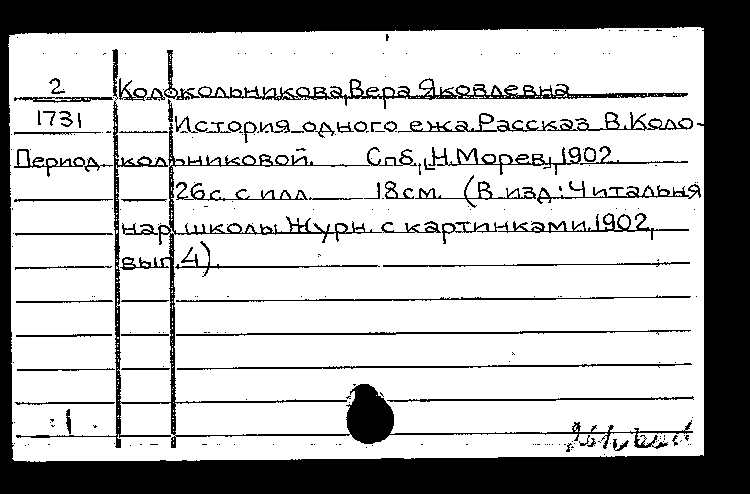 2 Колокольникова, Вера Яковлевна
1731 История одного ежа. Рассказ В. Коло-
Период. кольниковой. Спб., [Н. Морев], 1902.
26 с. с илл. 18 см. (В изд: Читальня
нар. школы. Журн. с картинками. 1902,
вып. 4).
1.